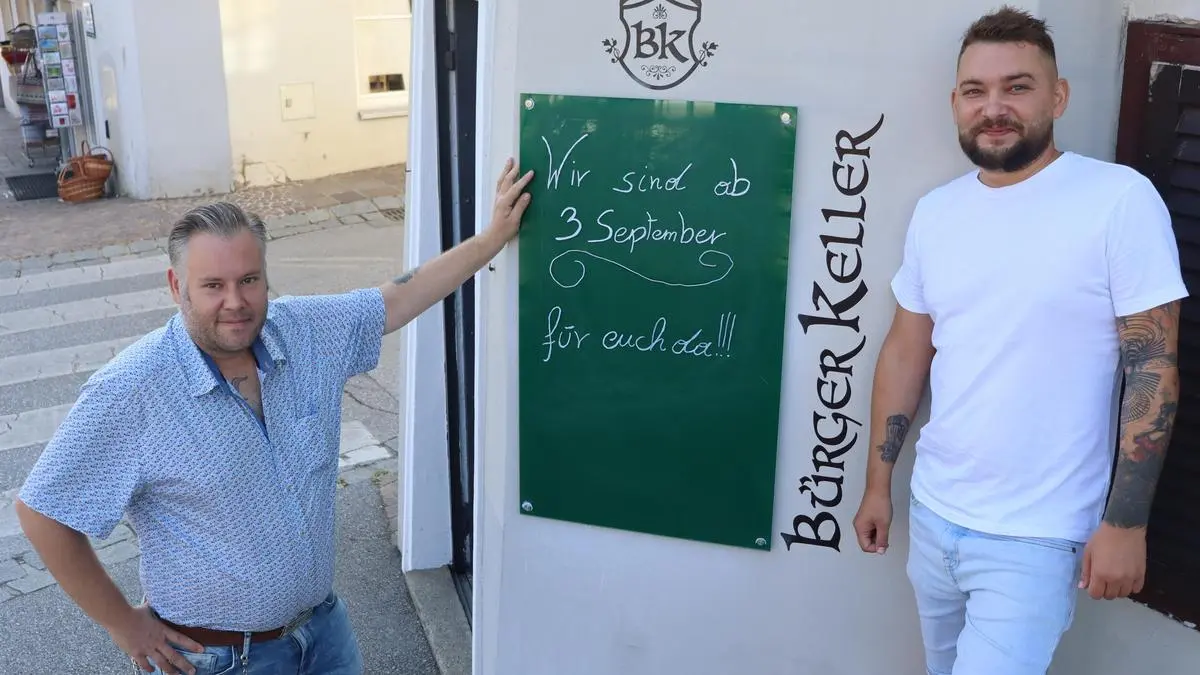 BK
Wir sind ab
3 September
für euch da!!!
BürgerKeller